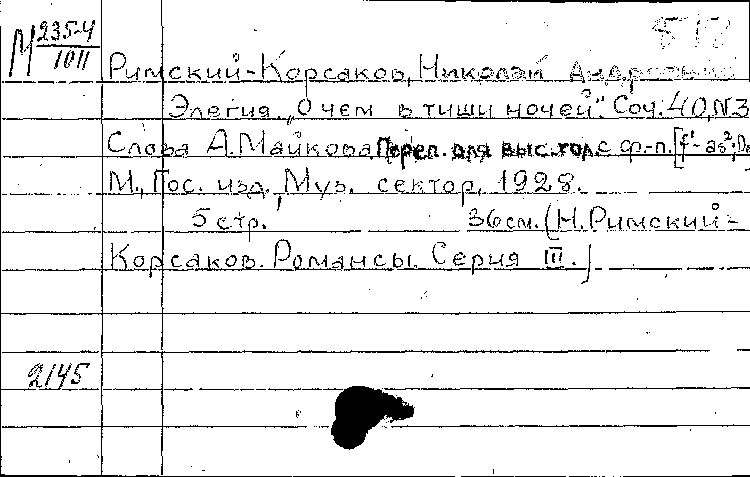 М 235-4/1011
Римский-Корсаков, Николай Андреевич
Элегия „О чем в тиши ночей". Соч. 40, N3
Слова А. Майкова. Переп. для выс. гол. с ф.-п. [f¹-as²;
М., Гос. изд., Муз. сектор, 1928.
5 стр. 36 см. (Н. Римский-
Корсаков. Романсы. Серия III.)
2145